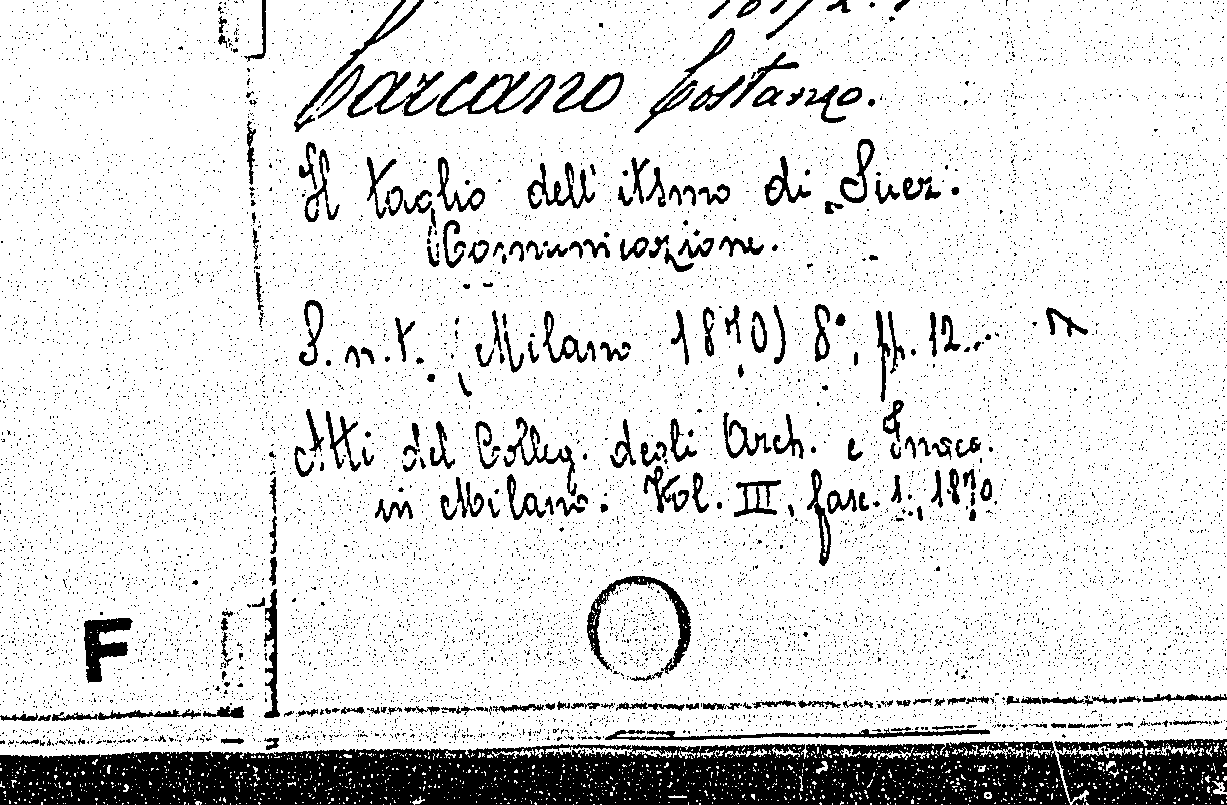 Carcano Costanzo.
Il taglio dell' itsmo di Suez.
Comunicazione.
S. n. t. (Milano 1870) 8°, pp. 12..
Atti del Colleg. degli Arch. e Ingeg.
in Milano. Vol. III, fasc. 1., 1870
F